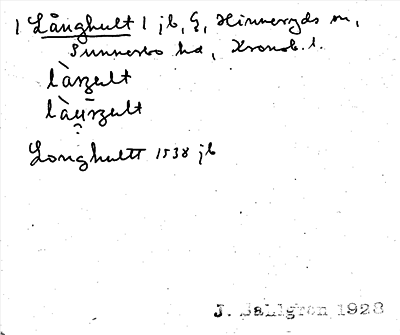 1 Långhult 1 jb, G, Hinneryds sn,
Sunnerbo hd, Kronob. l.
làŋult
Longhultt 1538 jb
J. Sahlgren 1928